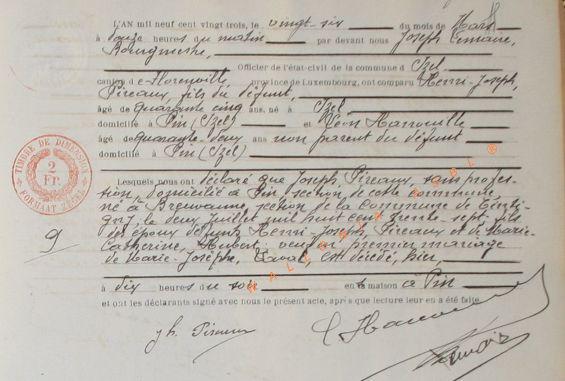 L'AN mil neuf cent vingt trois, le vingt-six du mois de Mars
à onze heures du matin par devant nous Joseph
Bourgmestre,
Officier de l'état-civil de la commune d'Izel
canton de Florenville, province de Luxembourg, ont comparu Henri-Joseph,
Pireaux, fils du défunt,
âgé de quarante cinq ans, né à Izel
domicilié à Pin (Izel) et Léon
âgé de quarante-deux ans non parent du défunt
domicilié à Pin (Izel)
TIMBRE DE DIMENSION
2
Fr.
Lesquels nous ont déclaré que Joseph Pireaux, sans profes-
sion, domicilié à Pin, section de cette commune
né à Breuvanne, section de la commune de Tinti-
gny, le deux juillet mil huit cent trente-sept, fils
des époux défunts Henri-Joseph Pireaux et de Marie-
9
Catherine, Hubert, veuf en premier mariage
de Marie-Josèphe, est décédé, hier,
à dix heures du soir en sa maison à Pin
et ont les déclarants signé avec nous le présent acte, après que lecture leur en a été faite.